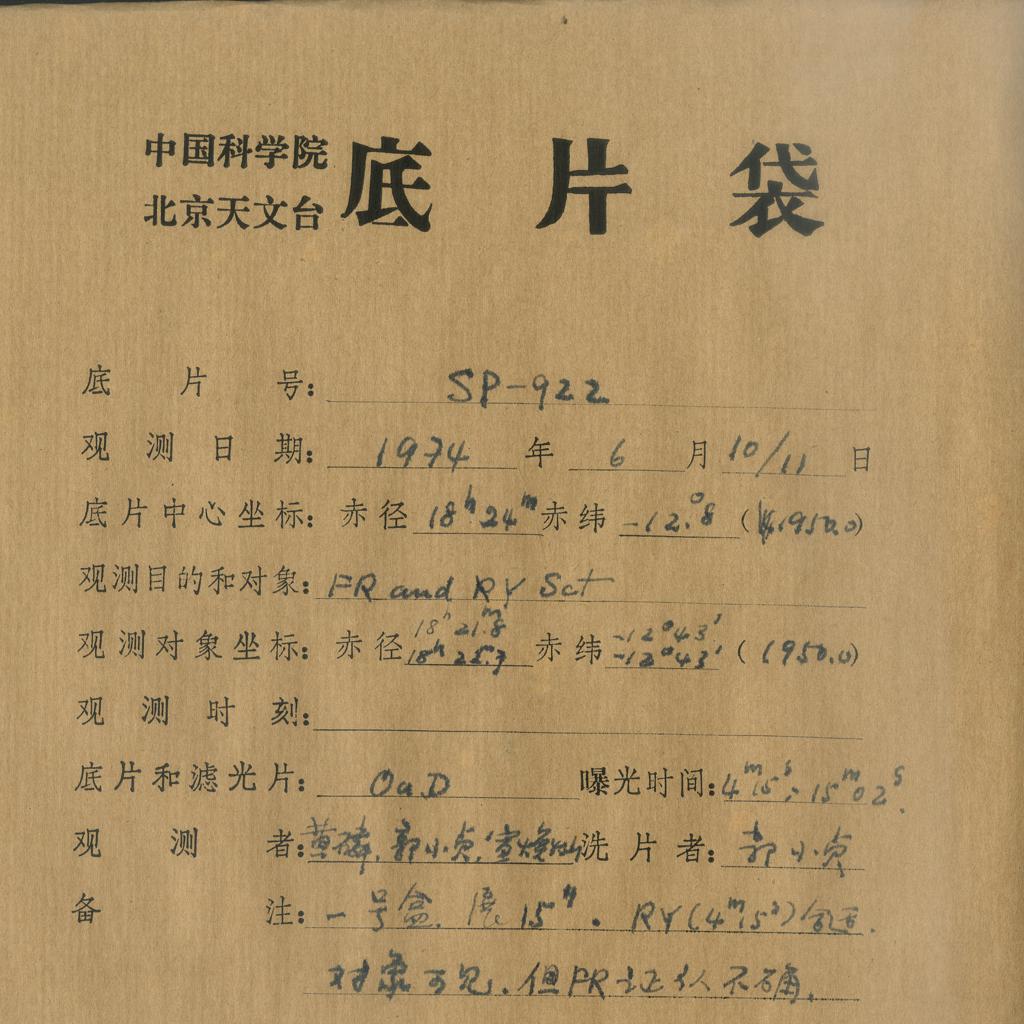 中国科学院
北京天文台
底片袋
底片号: SP-922
观测日期: 1974 年 6 月 10/11 日
底片中心坐标: 赤径 18ʰ24ᵐ 赤纬 -12.°8 (1950.0)
观测目的和对象: FR and RY Sct
18ʰ21.ᵐ8 -12°43′
观测对象坐标: 赤径 18ʰ25.7 赤纬 -12°43′ (1950.0)
观测时刻:
底片和滤光片: OaD 曝光时间: 4ᵐ15ˢ; 15ᵐ02ˢ.
观测者: 黄磷. 郭小贞. 洗片者: 郭小贞
备注: 一号盒. 展 15″. RY(4ᵐ15ˢ)
对象可见. 但FR证认不确.